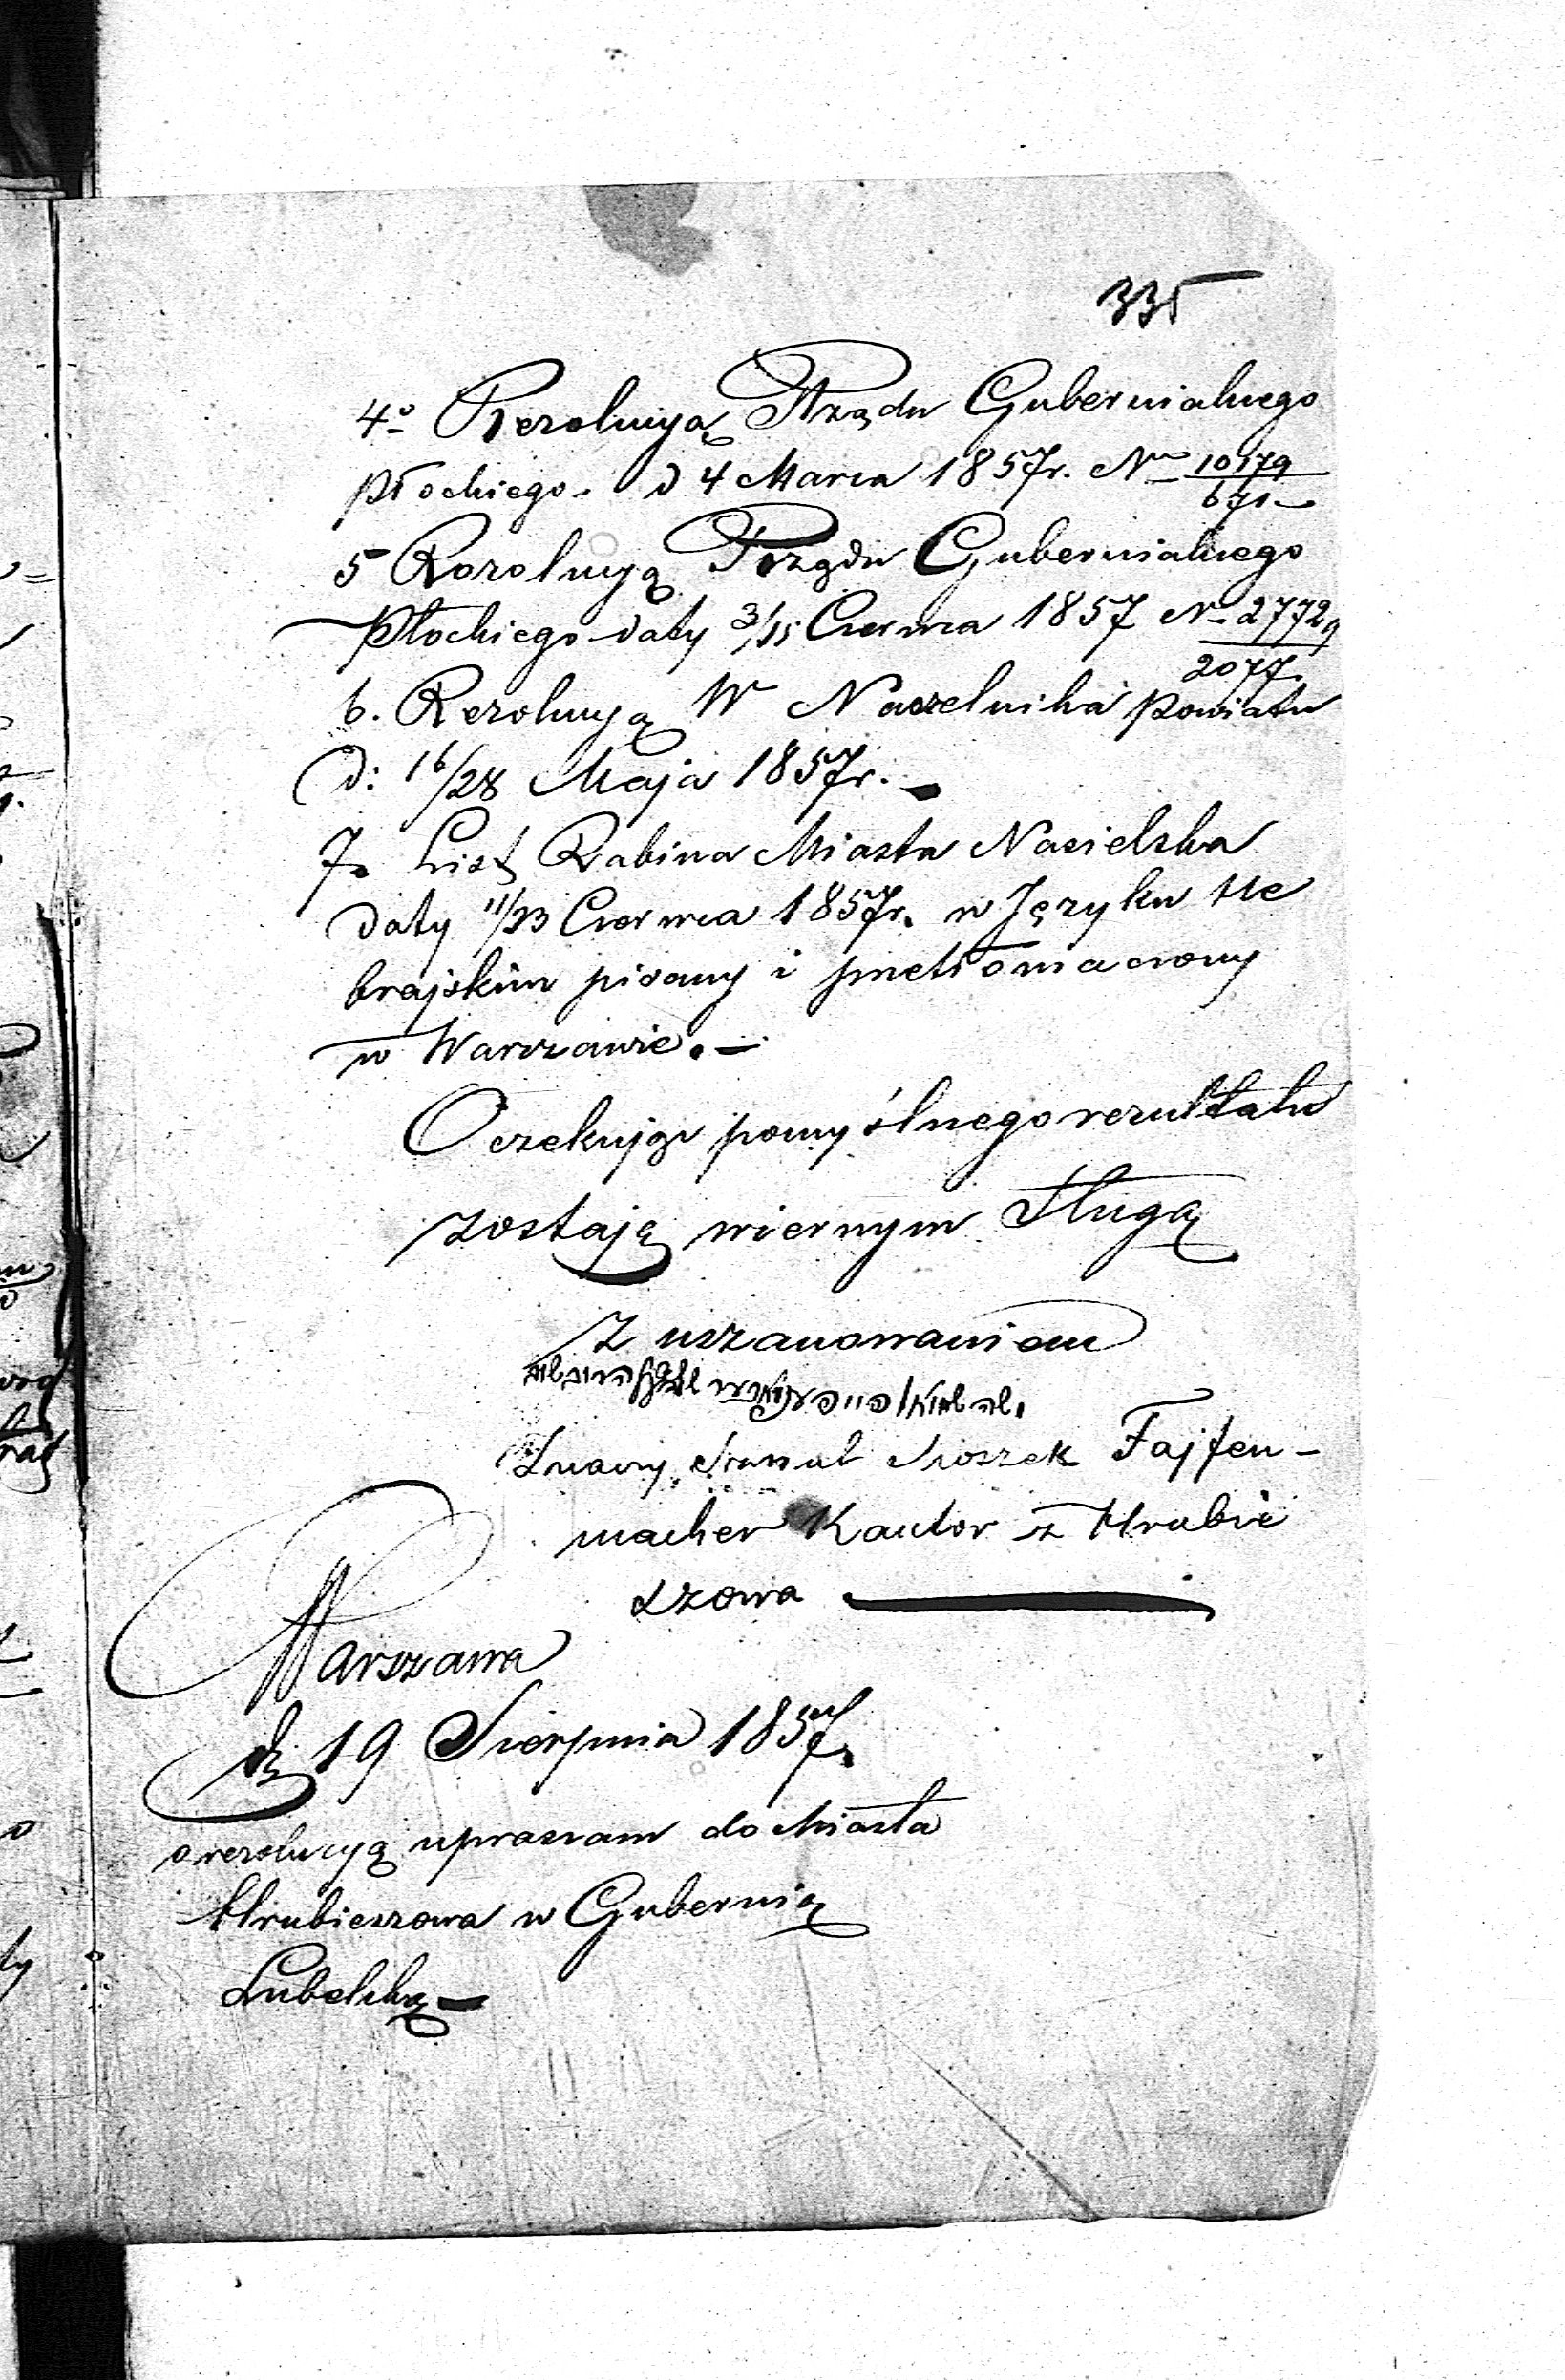 335
4o Rezolucyą Rządu Gubernialnego
Płockiego. d 4 Marca 1857r. No 10179/671
5 Rezolucyą Rządu Gubernialnego
Płockiego daty 3/15 Czerwca 1857 No 27729/2077.
6. Rezolucyą W Naczelnika Powiatu
d: 16/28 Maja 1857r. —
7. List Rabina Miasta Nasielska
daty 11/23 Czerwca 1857r. w Języku He
brajskim pisany i przetłomaczony
w Warszawie. —
Oczekując pomyślnego rezultatu
zostaję wiernym Sługą
Z uszanowaniem
Srul Moszek Fajfen-
macher Kantor z Hrubie
szowa
Warszawa
d 19 Sierpnia 1857.
o rezolucyą upraszam do Miasta
Hrubieszowa w Gubernią
Lubelską —